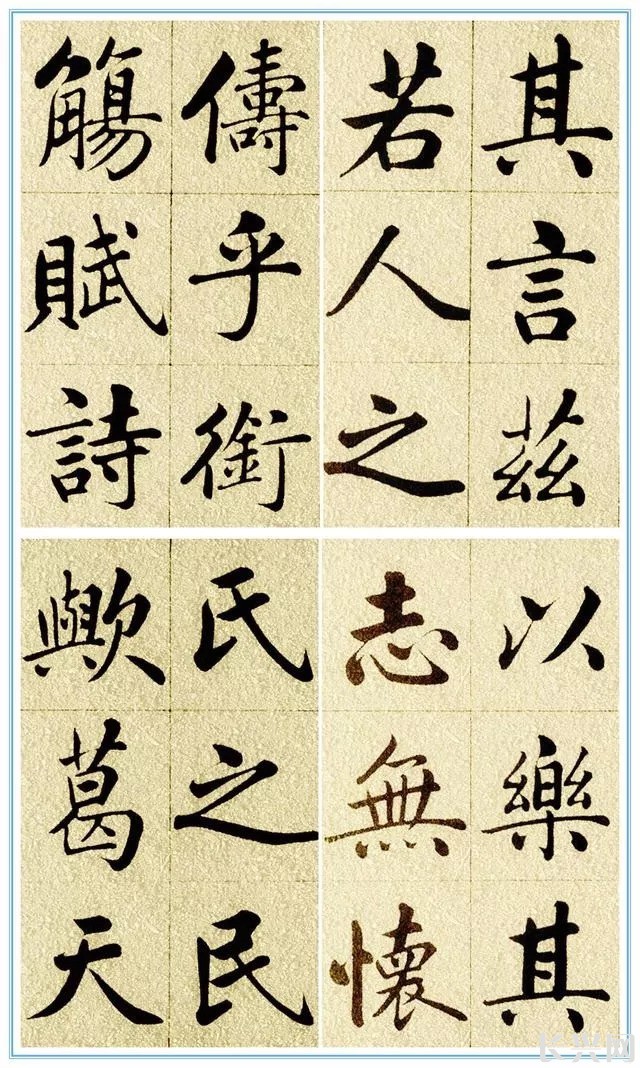 其言茲
若人之
儔乎銜
觴賦詩
以樂其
志無懷
氏之民
歟葛天
长兴网